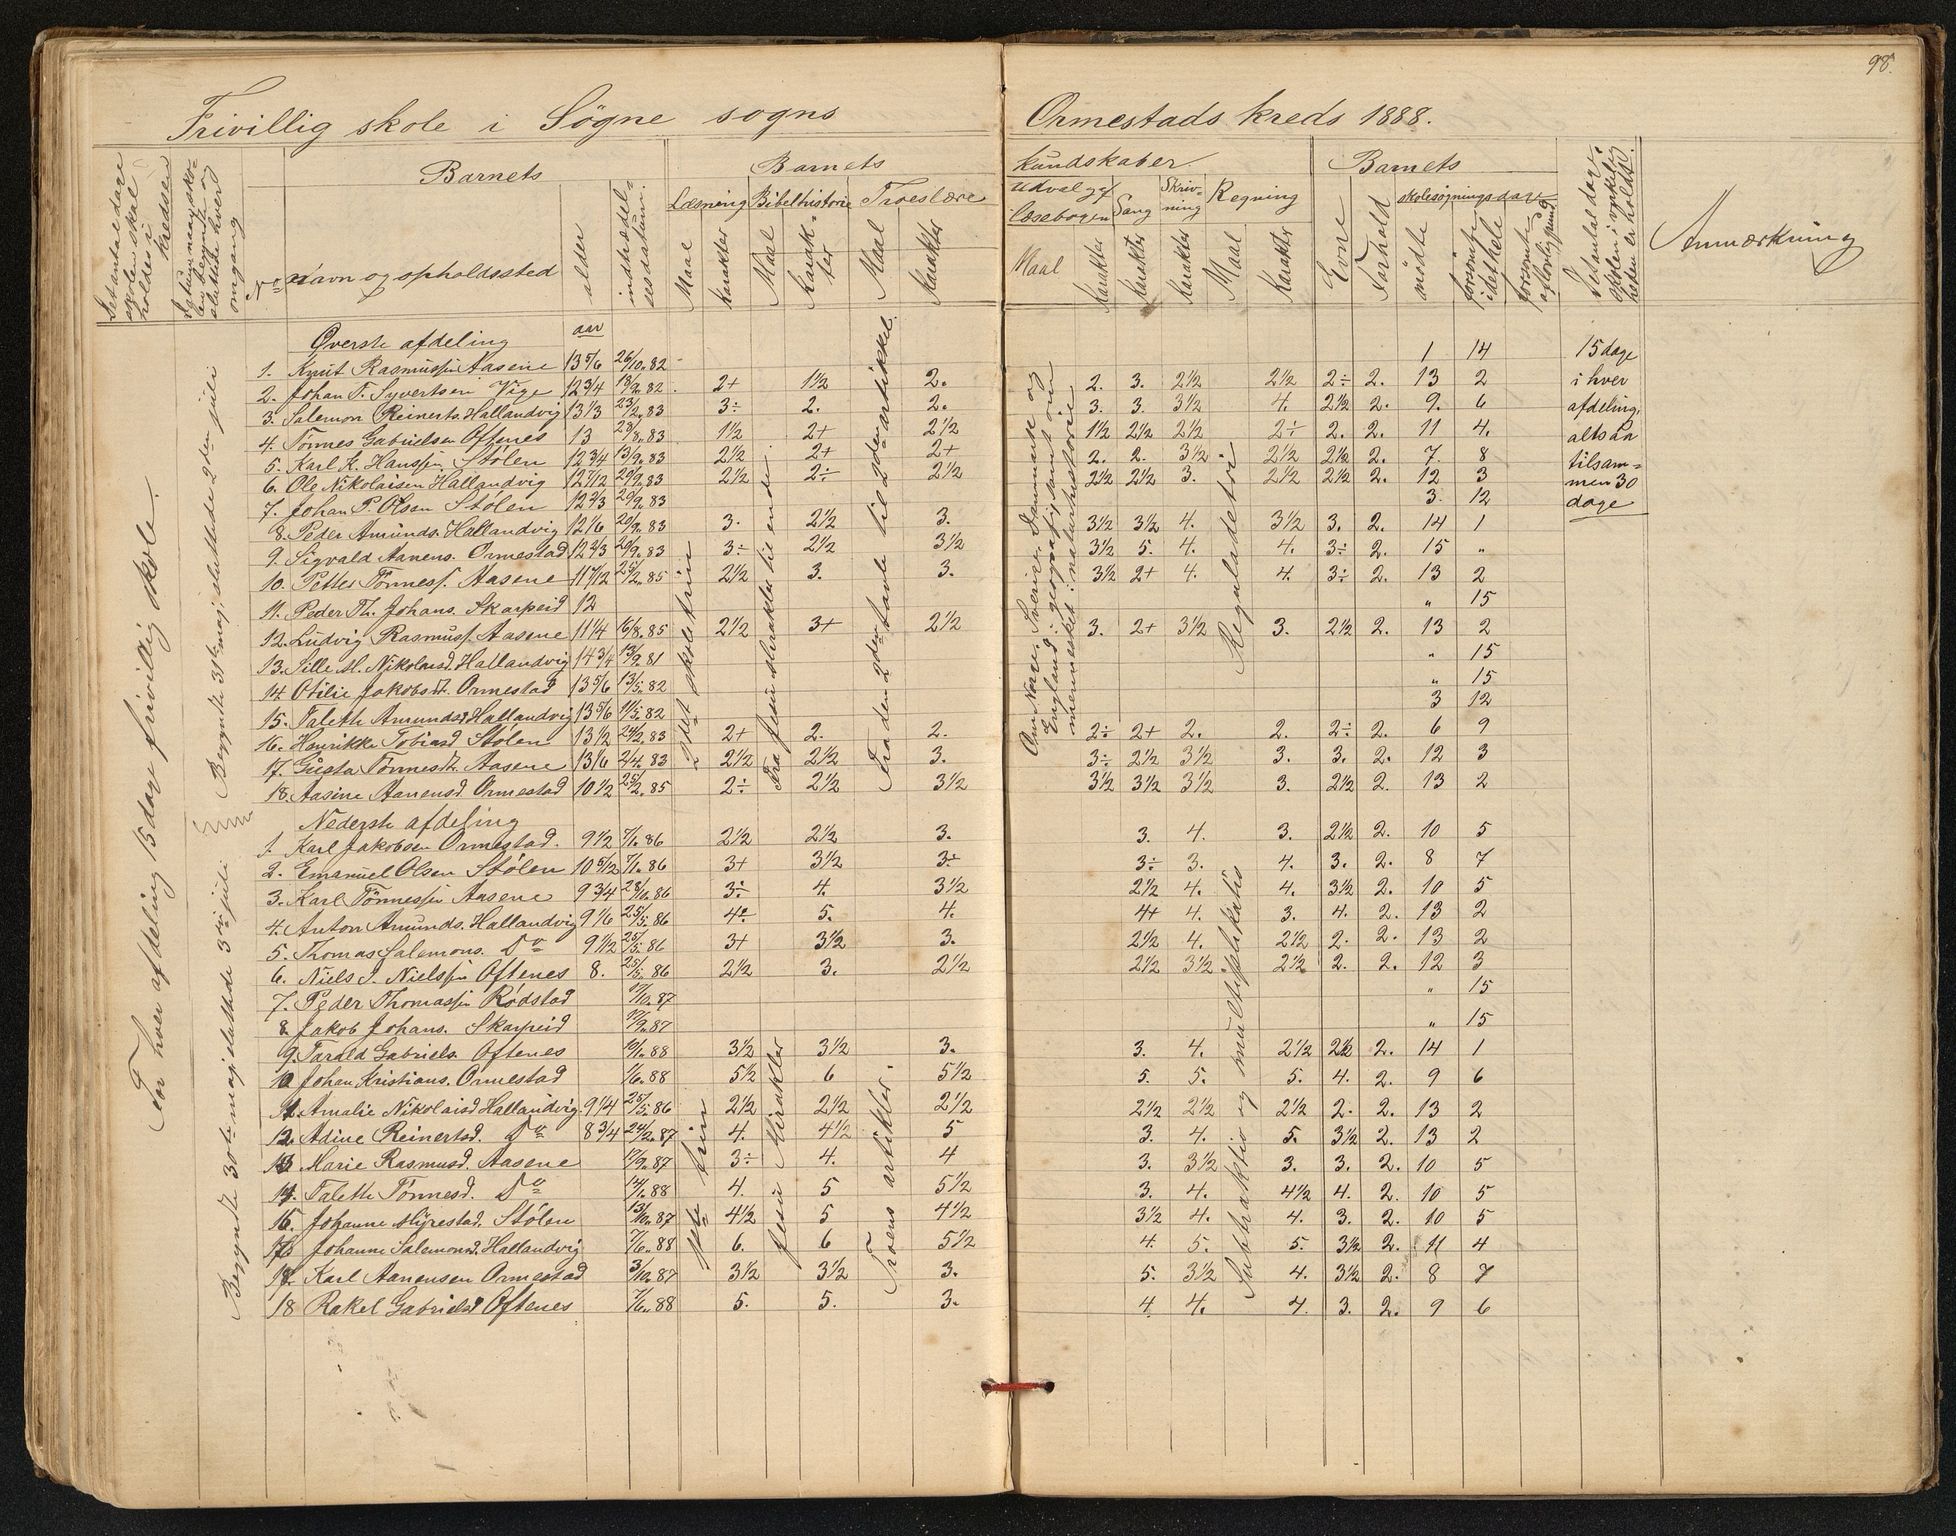 98.
Frivillig skole i Sögne sogns Ormestads kreds 1888.
Barnets Barnets kundskaber Barnets
Læsning Bibelhistorie Troeslære Udvalg af læsebogen Sang Skrivning Regning skolesøgningsdage
No Navn og opholdssted alder indtrædelsesdatum. Maal karakter Maal karakter Maal karakter Maal karakter karakter karakter Maal karakter Evne Forhold mødte forsømte i det hele Anmærkning
For hver afdeling 15 dage frivillig skole.
Begyndte 31te maj, sluttede 2den juli
Øverste afdeling aar
1. Knut Rasmussen Aasene 13 5/6 26/10.82 1 14 15 dage
2. Johan T. Syvertsen Vige 12 3/4 18/9.82 2+ 1½ 2. 2. 3. 2½ 2½ 2÷ 2. 13 2 i hver
3. Salemon Reinerts. Hallandvig 13 1/3 23/2.83 3÷ 2. 2. 3. 3. 3½ 4. 2½ 2. 9. 6 afdeling,
4. Tönnes Gabrielsen Oftenes 13 28/8.83 1½ 2+ 2½ 1½ 2½ 2½ 2÷ 2. 2. 11 4. altsaa
5. Karl K. Hanssen Stølen 12 3/4 13/9.83 2½ 2+ 2+ 2. 2. 3½ 2½ 2½ 2. 7. 8 tilsam=
6. Ole Nikolaisen Hallandvig 12 7/12 20/9.83 2½ 2÷ 2½ 2½ 2½ 3. 2½ 2½ 2. 12 3 men 30
7. Johan P. Olsen Stølen 12 2/3 20/9.83 3. 12 dage
8. Peder Amunds. Hallandvig 12 1/6 20/9.83 3. 2½ 3. 3½ 3½ 4. 3½ 3. 2. 14 1
9. Sigvald Aanens. Ormestad 12 2/3 20/9.83 3÷ 2½ 3½ 3½ 5. 4. 4. 3÷ 2. 15 „
10. Petter Tönness. Aasene 11 7/12 25/2.85 2½ 3. 3. 3½ 2+ 4. 4. 3÷ 2. 13 2
11. Peder Th. Johans. Skarpeid 12 „ 15
12. Ludvig Rasmuss. Aasene 11 1/4 16/8.85 2½ 3+ 2½ 3. 2+ 3½ 3. 2½ 2. 13 2
13. Sille M. Nikolaisd. Hallandvig 14 3/4 13/9.81 „ 15
14. Otilie Jakobsd. Ormestad 13 5/6 13/5.82 „ 15
15. Talette Amundsd Hallandvig 13 5/6 11/5.82 3 12
16. Henrikke Tobiasd Stølen 13 1/2 2+ 2. 2. 2÷ 2+ 2. 2. 2÷ 2. 6 9
17. Gusta Tönnesd. Aasene 13 1/6 2/4.83 2½ 2½ 3. 3÷ 2½ 3½ 3. 3. 2. 12 3
18. Aasine Aanensd. Ormestad 10 1/2 25/2.85 2÷ 2½ 3½ 3½ 3½ 3½ 3. 2½ 2. 13 2
2det skoletrin
Fra Jesu mirakler til enden
Fra den 2den tavle til 2den artikkel
Om Norge, Sverige, Danmark og England i geografi samt om mennesket i naturhistorie
Reguladetri
Begyndte 30te maj, sluttede 3die juli
Nederste afdeling
1. Karl Jakobsen Ormestad. 9 1/2 7/1.86 2½ 2½ 3. 3. 4. 3. 2½ 2. 10 5
2. Emanuel Olsen Stølen 10 5/12 7/1.86 3+ 3½ 3÷ 3÷ 3. 4. 3. 2. 8 7
3. Karl Tönnessen Aasene 9 3/4 28/10.86 3÷ 4. 3½ 2½ 4. 4. 3½ 2. 10 5
4. Anton Amunds. Hallandvig 9 1/6 25/5.86 4. 5. 4. 4+ 4. 3. 4. 2. 13 2
5. Thomas Salemons. Do 9 1/2 25/5.86 3+ 3½ 3. 2½ 4. 2½ 2. 2. 13 2
6. Niels J. Nielssen Oftenes 8. 25/5.86 2½ 3. 2½ 2½ 3½ 2½ 2. 2. 12 3
7. Peder Thomassen Rödstad 17/10.87 „ 15
8. Jakob Johans. Skarpeid 17/9.87 „ 15
9. Tarald Gabriels. Oftenes 10/1.88 3½ 3½ 3. 3. 4. 2½ 2½ 2. 14 1
10. Johan Kristians. Ormestad 1/6.88 5½ 6 5½ 5. 5. 5. 4. 2. 9 6
11. Amalie Nikolaisd Hallandvig. 9 1/4 25/5.86 2½ 2½ 2½ 2½ 2½ 2½ 2. 2. 13 2
12. Adine Reinertsd. Do 8 3/4 24/2.87 4. 4½ 5 3. 4. 5. 3½ 2. 13 2
13 Marie Rasmusd. Aasene 17/9.87 3÷ 4. 4 3. 3½ 3. 3. 2. 10 5
14. Talette Tönnesd. Do 14/1.88 4. 5 5½ 3. 4. 4½ 4. 2. 10 5
15. Johanne Myrestad. Stølen 13/10.87 4½ 5 4½ 3½ 4. 4. 3. 2. 10 5
16 Johanne Salemonsd. Hallandvig 7/6.88 6. 6 5½ 4. 5. 5. 3½ 2. 11 4
18. Karl Aanensen Ormestad 3/10.87 3½ 3½ 3. 5. 3½ 4. 3½ 2. 8 7
18 Rakel Gabrielsd Oftenes 7/6.88 5. 5. 3. 4 4. 4. 3. 2. 9 6
1ste trin
Jesu Mirakler
Troens artikler.
Subtraktio og multiplikatio